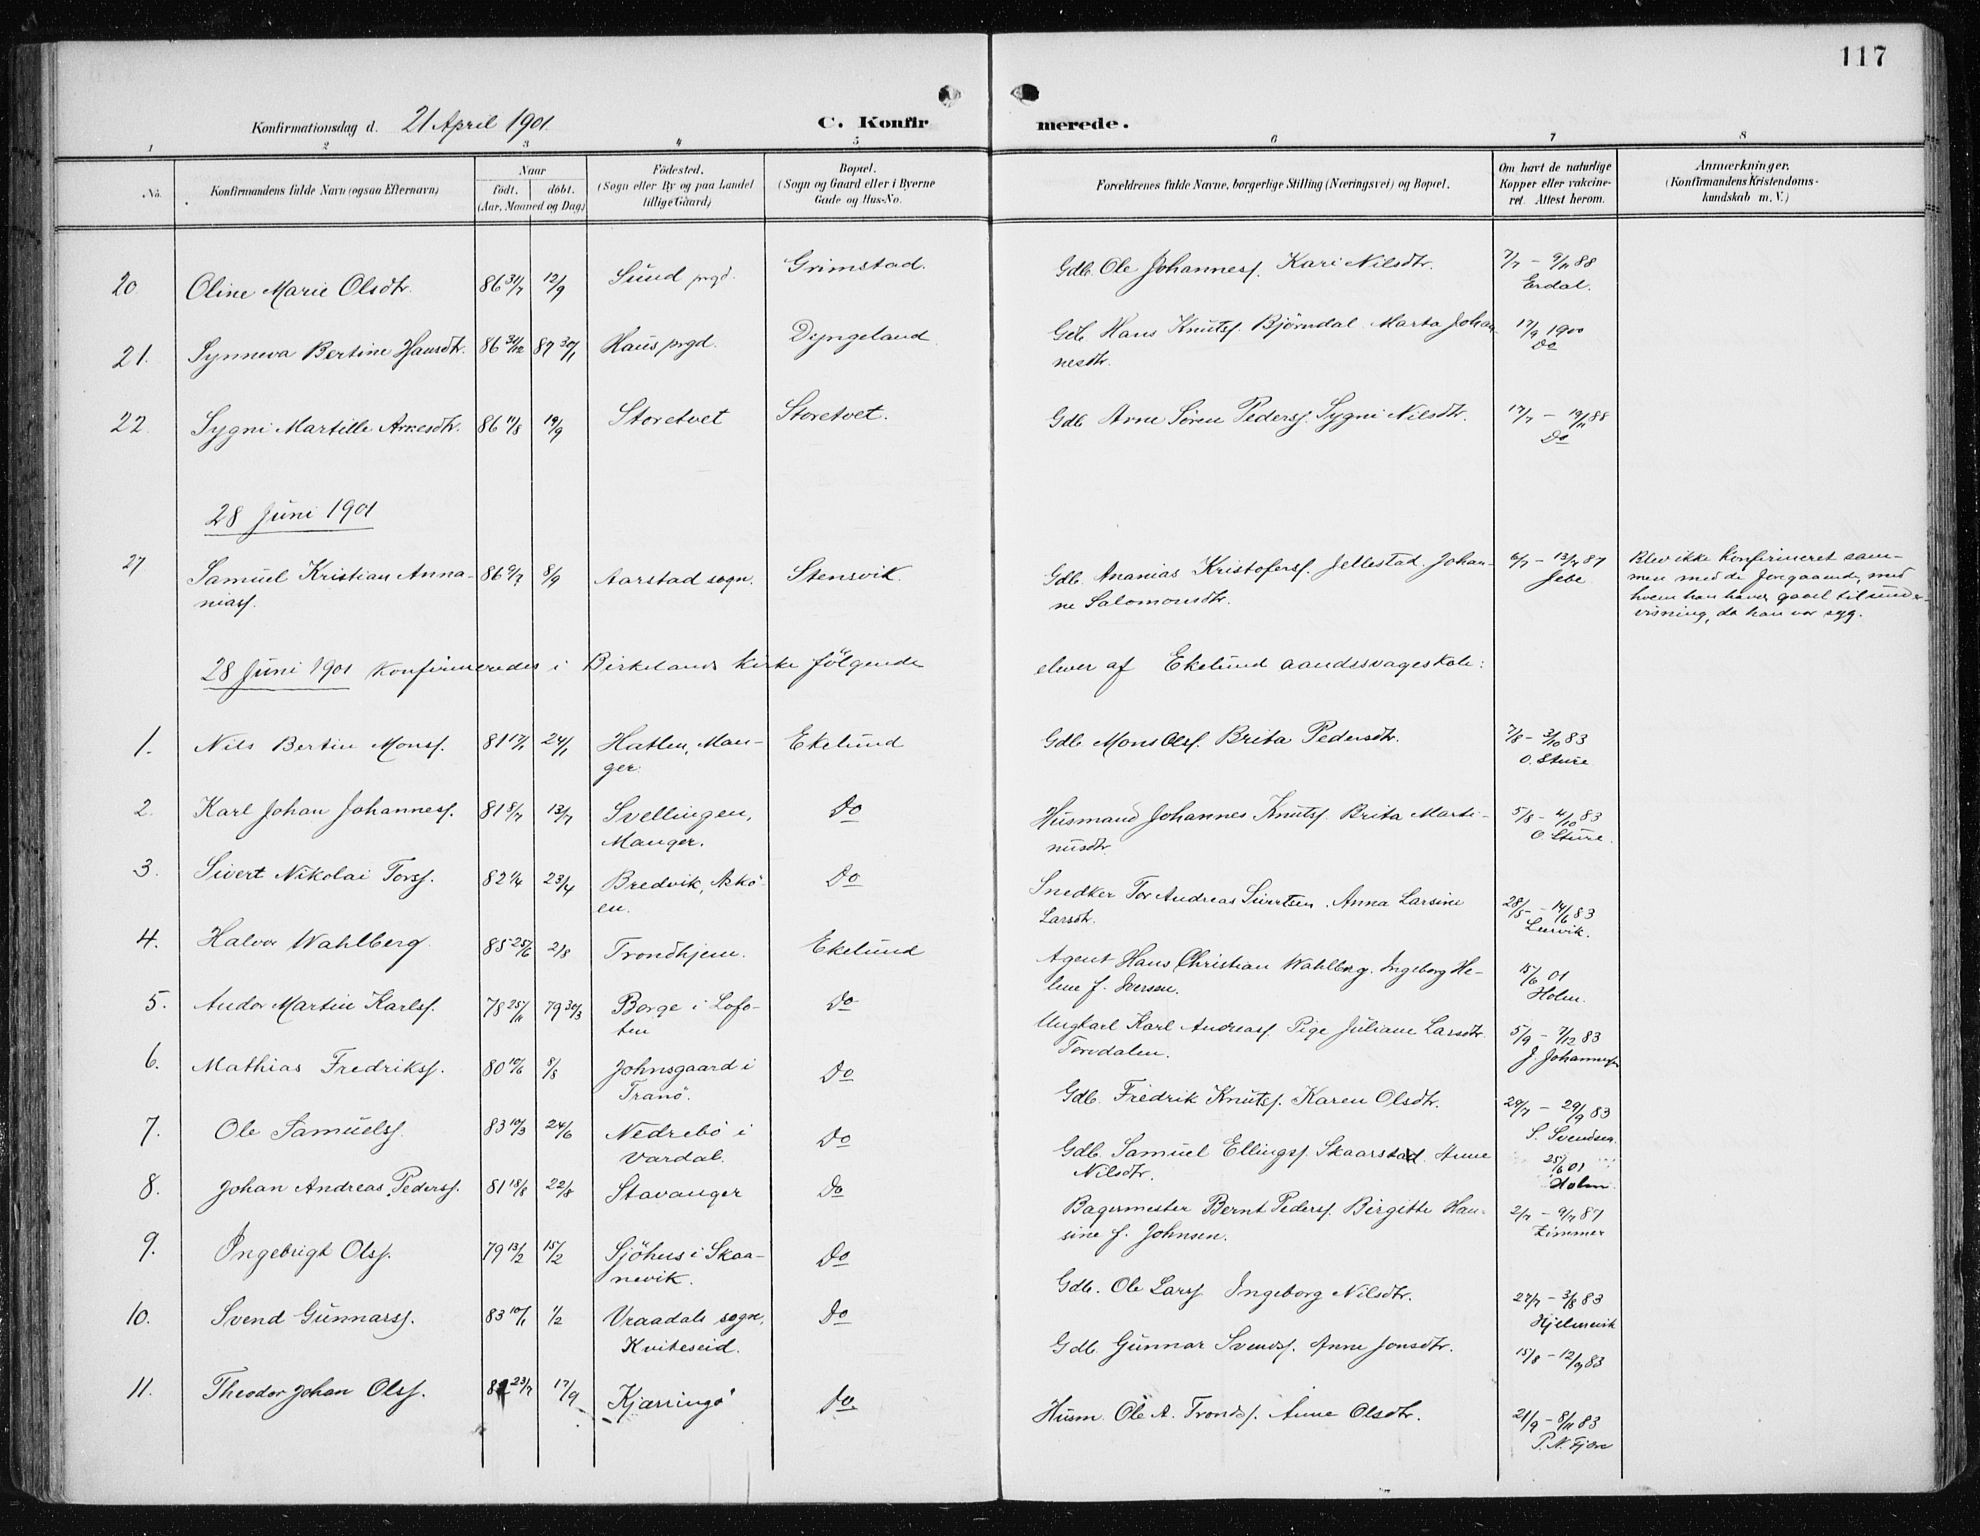 117
Konfirmationsdag d. 21 April 1901.
C. Konfirmerede.
1 2 3 4 5 6 7 8
No.
Konfirmandens fulde Navn (ogsaa Efternavn)
Naar
født. døbt.
(Aar, Maaned og Dag)
Fødested.
(Sogn eller By og paa Landet
tillige Gaard)
Bopæl.
(Sogn og Gaard eller i Byerne
Gade og Hus-No.
Forældrenes fulde Navne, borgerlige Stilling (Næringsvei) og Bopæl.
Om havt de naturlige
Kopper eller vakcine-
ret. Attest herom.
Anmærkninger.
(Konfirmandens Kristendoms-
kundskab m. V.)
20. Oline Marie Olsdtr. 86 31/7 12/9 Sund prgd. Grimstad. Gdb. Ole Johannesf. Kari Nilsdtr. 7/7 - 9/11 88
Erdal.
21. Synneva Bertine Hansdtr. 86 31/12 87 30/1 Haus prgd. Dyngeland Gdb Hans Knutsf. Bjørndal Marta Johan-
nesdtr. 17/9 1900
Do
22. Sygni Martille Arnesdtr. 86 11/8 19/9 Storetvet Storetvet. Gdb Arne Søren Pedersf. Sygni Nilsdtr. 17/7 - 19/11 88
Do
28 Juni 1901
27 Samuel Kristian Anna-
niasf. 86 9/7 8/9 Aarstad sogn. Stensvik. Gdb. Ananias Kristofersf. Jellestad. Johan-
ne Salomonsdtr. 6/7 - 13/7 87
Jebe
Blev ikke konfirmeret sam-
men med de foregaaende, med
hvem han havde gaaet til under-
visning, da han var syg.
28 Juni 1901 konfirmeredes i Birkelands kirke følgende elever af Ekelund aandssvageskole:
1. Nils Bertin Monsf. 81 17/1 24/1 Hatlen, Man-
ger. Ekelund Gdb Mons Olsf. Brita Pedersdtr. 7/8 - 3/10 83
O. Sture
2. Karl Johan Johannesf. 81 8/7 13/7 Svellingen,
Manger. Do Husmand Johannes Knutsf. Brita Marti-
nusdtr 5/8 - 4/10 83
O Sture.
3. Sivert Nikolai Torsf. 82 1/4 23/4 Bredvik, Askö-
en. Do Snedker Tor Andreas Sivertsen. Anna Larsine
Larsdtr. 28/5 - 14/6 83
Lervik.
4. Halvor Wahlberg. 85 25/6 2/8 Trondhjem. Ekelund Agent Hans Christian Wahlberg. Ingeborg He-
lene f. Iversen. 15/6 01
Holm.
5. Andor Martin Karlsf. 78 25/11 79 30/3 Borge i Lofo-
ten Do Ungkarl Karl Andreasf. Pige Juliane Larsdtr.
Torvdalen. 5/9 - 7/12 83
J. Johannesen
6. Mathias Fredriksf. 80 10/6 8/8 Johnsgaard i
Tranö. Do Gdb. Fredrik Knutsf. Karen Olsdtr. 29/7 - 29/9 83
S. Svendsen.
7. Ole Samuelsf. 83 10/3 24/6 Nedrebö i
Vardal. Do Gdb. Samuel Ellingsf. Skaarstad. Anne
Nilsdtr. 25/6 01
Holm.
8. Johan Andreas Pedersf. 81 18/8 22/8 Stavanger Do Bagermester Bernt Pedersf. Birgitte Han-
sine f. Johnsen. 2/7 - 9/7 87
Zimmer
9. Ingebrigt Olsf. 79 13/2 15/2 Sjöhus i Skaa-
nevik. Do Gdb. Ole Larsf Ingeborg Nilsdtr. 27/7 - 3/8 83
Hjelmevik
10. Svend Gunnarsf. 83 10/1 1/2 Vraadals sogn,
Kviteseid. Do Gdb. Gunnar Svendsf. Anne Jonsdtr. 15/8 - 12/9 83
11. Theodor Johan Olsf. 82 23/7 17/9 Kjærringö Do. Husm. Ole A. Trondsf. Anne Olsdtr. 21/9 - 8/11 83
P. N. Fjære